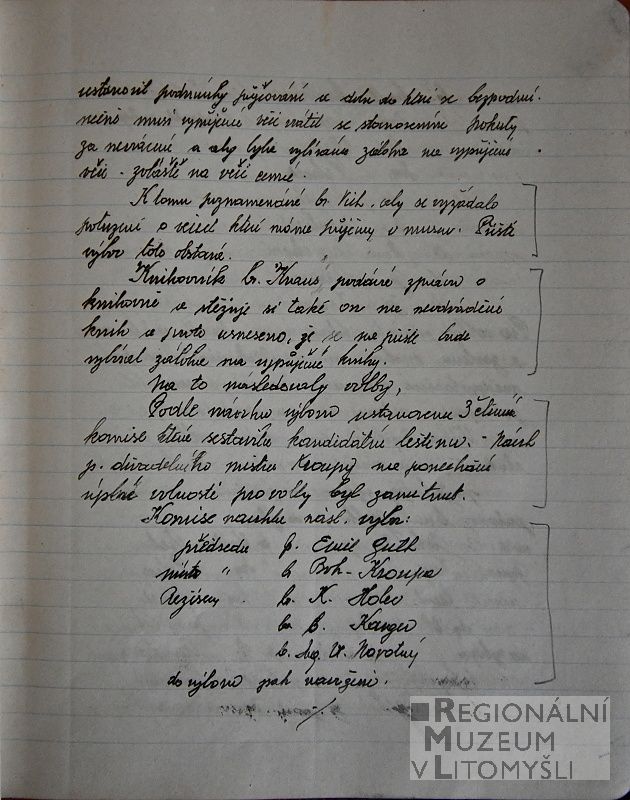 ustanovil podmínky půjčování a dobu do které se bezpodmí-
nečně musí vypůjčené věci vrátit se stanovením pokuty
za nevrácení a aby byla vybírána záloha na vypůjčené
věci - zvláště na věci cenné.
K tomu poznamenává br. Vích, aby se vyžádalo
potvrzení o věcech které máme půjčeny v museu. Příští
výbor toto obstará.
Knihovník br. Kraus, podává zprávu o
knihovně a stěžuje si také on na neodvádění
knih a proto usneseno, že se na příště bude
vybírat záloha na vypůjčené knihy.
Na to následovaly volby,
Podle návrhu výboru ustanovena 3 členná
komise která sestavila kandidátní listinu. - Návrh
p. divadelního mistra Kroupy na ponechání
úplné volnosti pro volby byl zamítnut.
Komise navrhla násl. výbor:
předseda p. Emil Guth
místo " b. Boh. Kroupa
Režiséry br. K. Holec
br. B. Karger
b. Ing. V. Novotný
do výboru pak navrženi.
REGIONÁLNÍ
MUZEUM
V LITOMYŠLI